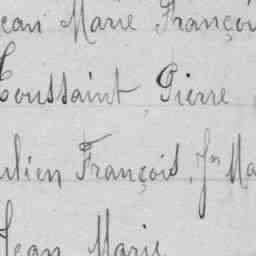 Jean Marie François
Toussaint, Pierre
ulien François, Jn Ma
Jean Marie